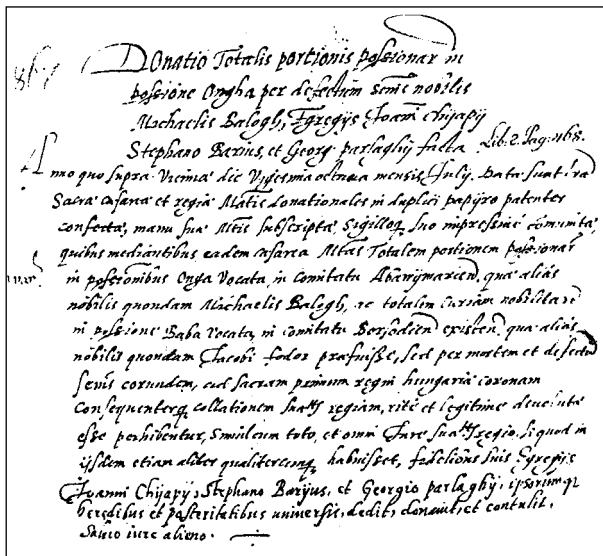 Donatio Totalis portionis possionar in
possione Ongha per defectum seminis nobilis
Michaelis Balogh, Egregijs Joanni Chijapij
Stephano Barius, et Georg parlaghij facta Lib: 2. Pag: 168.
Anno quo supra Vicima die Vigesima octaua mensis Julij. Data sunt
Sacræ Cæsareæ et regiæ Mattis donationales in duplici papijro patenter
confectæ, manu suæ Mttis subscriptæ, sigilloq suo impressiue comunitæ,
quibus mediantibus eadem cæsarea Mttas Totalem portionem possionar
in possessionibus Onga Vocata, in Comitatu Abaujwarien, quæ alias
nobilis quondam Michaelis Balogh, ac totalem Curiam nobilitarem
in possione Baba vocata, in comitatu Borsodien existen, quæ alias
nobilis quondam Jacobi fodor præfuisse, sed per mortem et defectum
seminis eorundem, ad sacram primum regni hungariæ coronam
consequenterq collationem suæ Mttis regiam, ritè et legitime deuoluta
esse perhibentur, Simulcum toto, et omni Jure suæ Mttis regio, si quod in
ijsdem etiam aliter qualitercunq habuisset, fidelibus suis Egregijs
Joanni Chijapij, Stephano Barijus, et Georgio parlaghij, ipsorumq
heredibus et posteritatibus uniuersis, dedit, donauit, et contulit,
Saluo iure alieno.